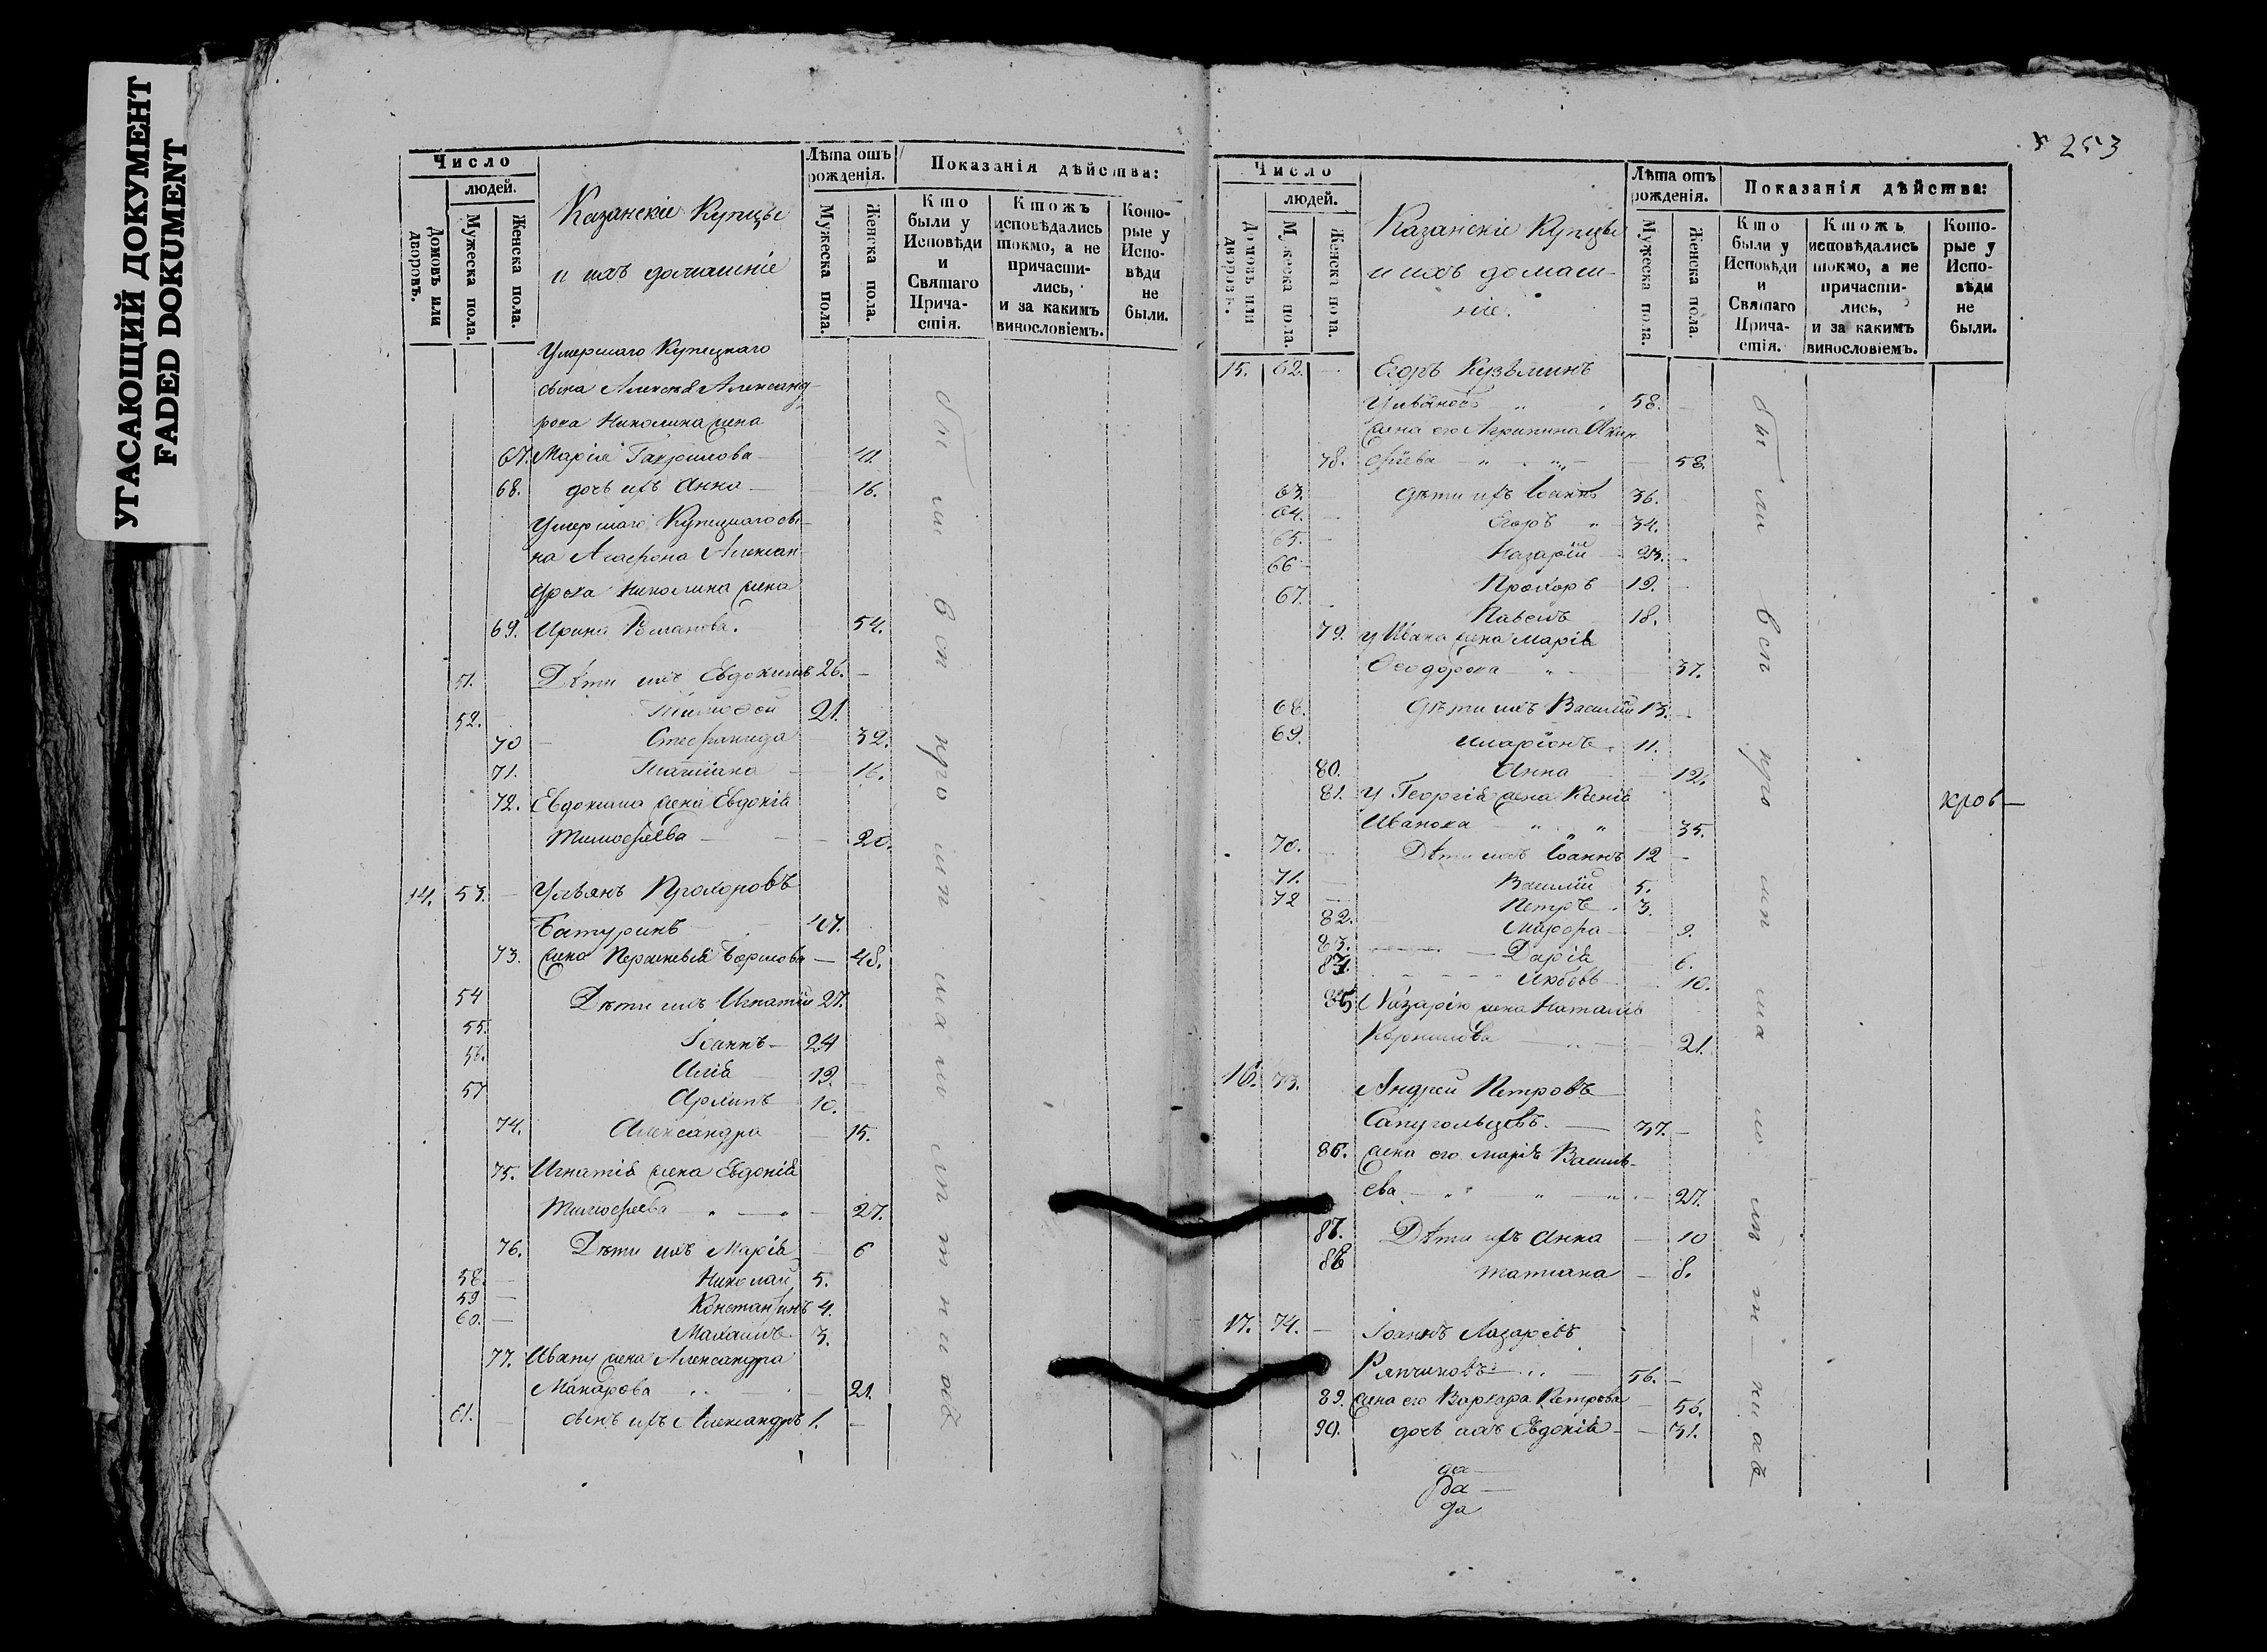 УГАСАЮЩИЙ ДОКУМЕНТ
FADED DOKUMENT
Число
людей.
Домовъ или дворовъ.
Мужеска пола.
Женска пола.
Казанскіе Купцы
и ихъ домашніе
Лѣта отъ рожденія.
Мужеска пола.
Женска пола.
Показанія дѣйства:
Кто были у Исповѣди и Святаго Прича-стія.
Ктожъ исповѣдались токмо, а не причасти-лись, и за какимъ винословіемъ.
Кото-рые у Испо-вѣди не были.
Умершаго Купецкаго
сына Алексѣя Александ
рова Николина жена
67. Марія Гаврилова
68. дочь ихъ Анна — 16.
Умершаго Купецкаго сы-
на Агафона Алексан
дрова Николина жена
69. Ирина Романова. 54.
51. Дѣти ихъ Евдокимъ 26. —
52. Тимофей 21.
70 — Стефанида 32.
71. Татіана — 16.
72. Евдокима жена Евдокія
Тимофеева — 20.
14. 53. — Ульянъ Прохоровъ
Батуринъ 47.
73. жена Борисова — 48.
54 Дѣти ихъ Игнатій 27.
55. Іоаннъ — 24
56. Илія 19.
57 10.
74. Александра — 15.
75. Игнатія жена Евдокія
Тимофеева — 27.
76. Дѣти ихъ Марія — 6
58. — Николай 5.
59 — Константинъ 4.
60. — Михаилъ 3.
77. Ивану жена Александра
Макарова — 21.
61. — сынъ ихъ Александръ 1. —
253
Число
людей.
Домовъ или дворовъ.
Мужеска пола.
Женска пола.
Казанскіе Купцы
и ихъ домаш-
ніе.
Лѣта отъ рожденія.
Мужеска пола.
Женска пола.
Показанія дѣйства:
Кто были у Исповѣди и Святаго Прича-стія.
Ктожъ исповѣдались токмо, а не причасти-лись, и за какимъ винословіемъ.
Кото-рые у Испо-вѣди не были.
15. 62. — Егоръ Кузьминъ
58.
жена его Агрипина
78. 58.
63. дѣти ихъ Іоаннъ 36.
64. — Егоръ 34.
65. — Назарій 23. —
66 — Прохоръ 19. —
67. Павелъ 18.
79. у Ивана жена Марія
Ѳеодорова — 37.
68. Дѣти ихъ Василій 13. —
69. Иларіонъ 11.
80. Анна — 12.
81. у Георгія жена Ксенія
Иванова 35.
70. — Дѣти ихъ Іоаннъ 12 —
71. — Василій 5.
72 — Петръ 3.
82. Марфа — 9.
83. — Дарія — 6.
84. Любовь 10.
85 Назарію жена Наталія
Корнилова — 21.
16. 73. Андрей Петровъ
Сапугольцевъ. — 37. —
86. жена его Марія Василь-
ева — 27.
87. Дѣти ихъ Анна — 10
88 Татиана — 8.
17. 74. — Іоаннъ Лазаревъ
56. —
89. жена его Варвара Петрова 56.
90. дочь ихъ Евдокія — 31.
да —
да —
да
кров —